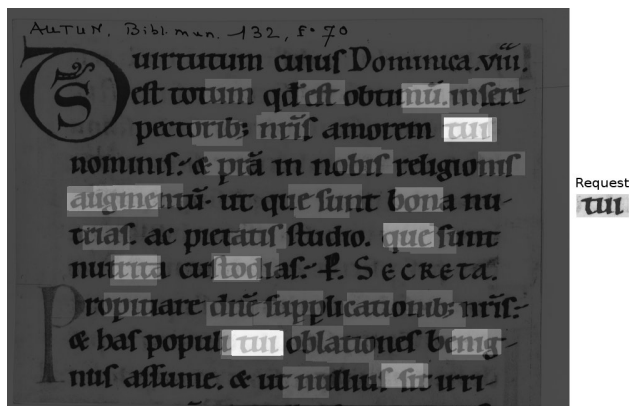 AUTUN, Bibl. mun. 132, f° 70
DS uirtutum cuiuſ Dominica .viii.
eſt totum qd̄ eſt obtimū. inſere
pectorib; nr̄iſ amorem tui
nominiſ: & p̄ta in nobiſ religioniſ
augmentū. ut que ſunt bona nu-
triaſ. ac pietatiſ ſtudio. que ſunt
nutrita cuſtodiaſ: P. SECRETA.
Propitiare dn̄e ſupplicationib; nr̄iſ:
& haſ populi tui oblationeſ benig-
nuſ aſſume. & ut nulliuſ ſit irri-
Request
tui